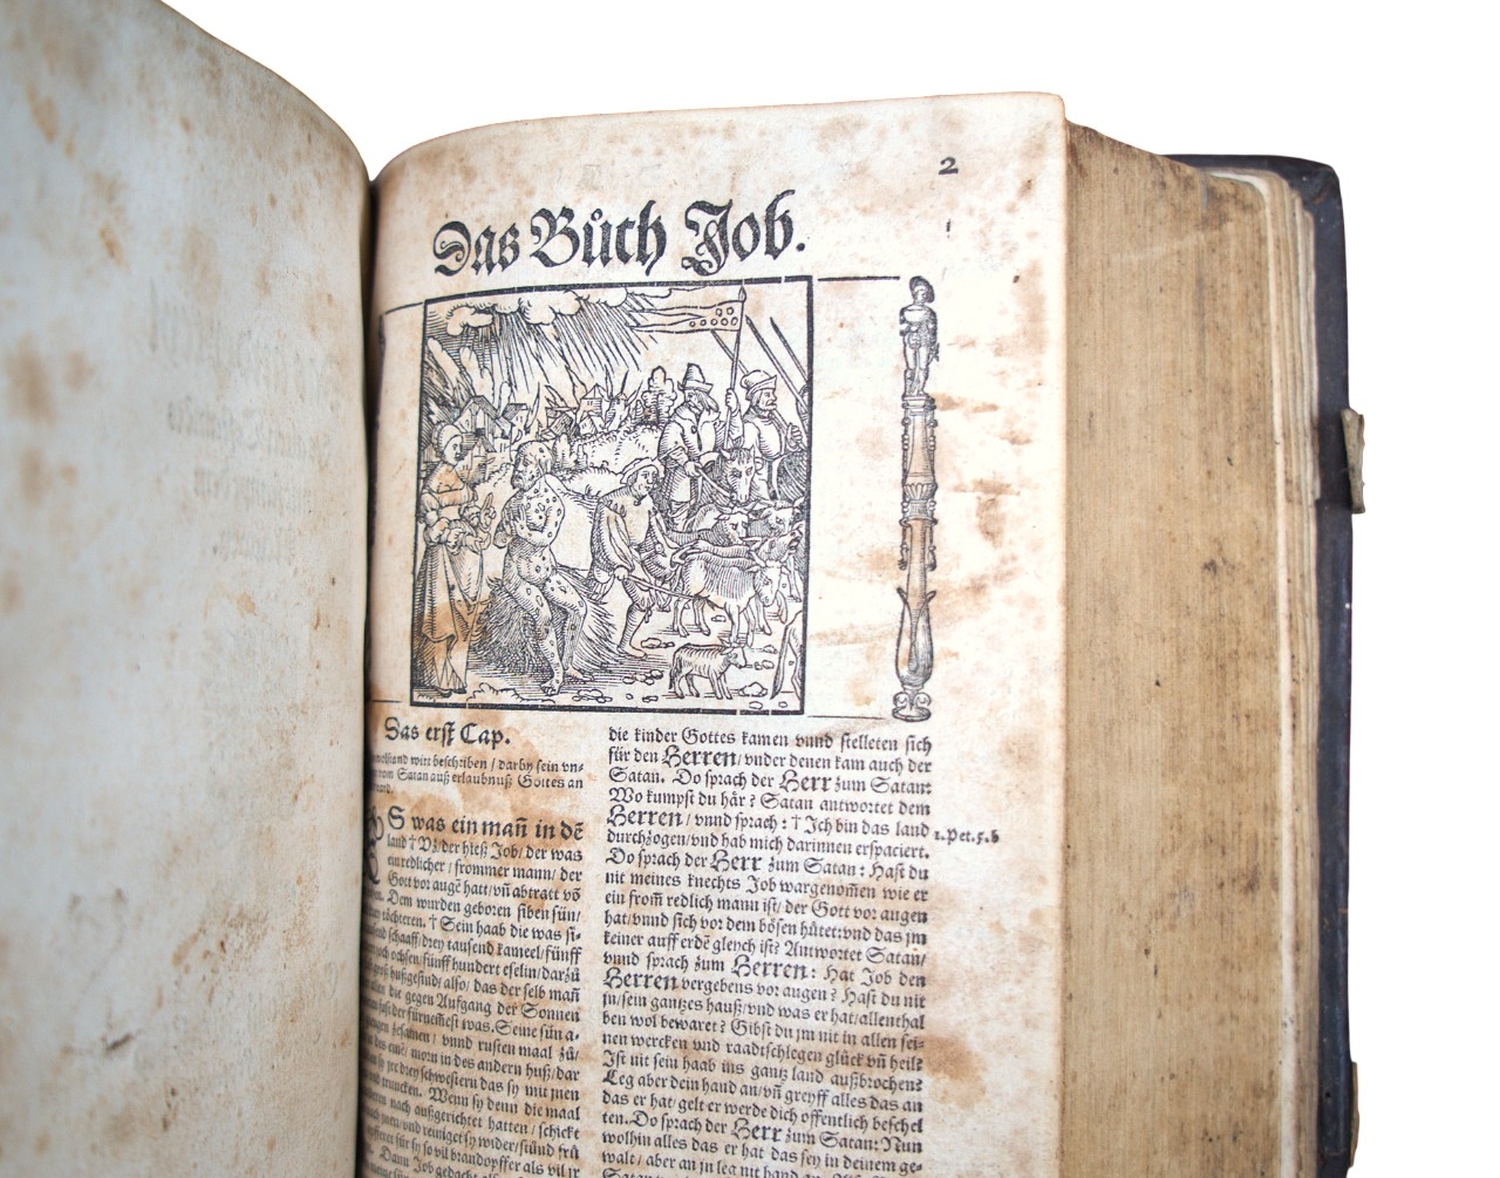 2
Das Bůch Job.
Das erst Cap.
wirt beschriben / darby sein vn-
vom Satan auß erlaubnuß Gottes an
ES was ein mañ in dē
land † Vz / der hieß Job / der was
ein redlicher / frommer mann / der
Gott vor augē hatt / vñ abtratt vō
Dem wurden geboren siben sün /
töchteren. † Sein haab die was si-
schaaff / drey tausend kameel / fünff
joch ochsen / fünff hundert eselin / darzů
haußgesind / also / das der selb mañ
die gegen Aufgang der Sonnen
der fürnemest was. Seine sün a-
zesamen / vnnd rusten maal zů /
des einē / morn in des andern huß / dar
jre drey schwestern das sy mit jnen
truncken. Wenn sy denn die maal
nach außgerichtet hatten / schickt
vnd reiniget sy wider / stůnd frů
für sy so vil brandopffer als vil jr
Dann Job gedacht
die kinder Gottes kamen vnnd stelleten sich
für den Herren / vnder denen kam auch der
Satan. Do sprach der Herr zum Satan:
Wo kumpst du här? Satan antwortet dem
Herren / vnnd sprach: † Ich bin das land
1. Pet. 5. b
durchzogen / vnd hab mich darinnen erspaciert.
Do sprach der Herr zum Satan: Hast du
nit meines knechts Job wargenom̃en wie er
ein from̃ redlich mann ist / der Gott vor augen
hat / vnnd sich vor dem bösen hůtet: vnd das jm
keiner auff erdē gleych ist? Antwortet Satan /
vnnd sprach zum Herren: Hat Job den
Herren vergebens vor augen? Hast du nit
jn / sein gantzes hauß / vnd was er hat / allenthal
ben wol bewaret? Gibst du jm nit in allen sei-
nen wercken vnd raadtschlegen glück vñ heil?
Ist nit sein haab ins gantz land außbrochen?
Leg aber dein hand an / vñ greyff alles das an
das er hat / gelt er werde dich offentlich beschel
ten. Do sprach der Herr zum Satan: Nun
wolhin alles das er hat das sey in deinem ge-
walt / aber an jn leg nit hand an.